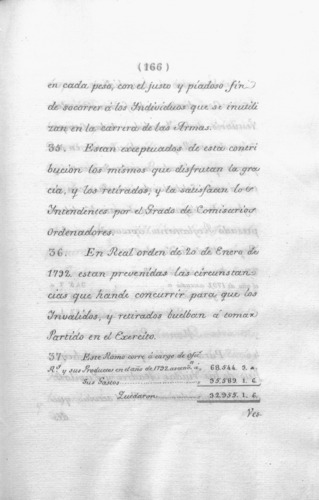 (166)
en cada peso, con el justo y piadoso fin
de socorrer á los Individuos que se inutili
zan en la carrera de las Armas.
35. Estan exceptuados de esta contri
bucion los mismos que disfrutan la gra
cia, y los retirados; y la satisfaan los
Intendentes por el Grado de Comisarios
Ordenadores.
36. En Real orden de 20 de Enero de
1792 estan prevenidas las circunstan
cias que hande concurrir para que los
Inválidos, y retirados buelban á tomar
Partido en el Exercito.
37. Este Ramo corre á cargo de ofi.s
R.s y sus Productos en el año de 1792 ascend.n á, 68.544. 2. 
Sus Gastos 35.589. 1. 6.
Quedaron 32.955. 1. 6.